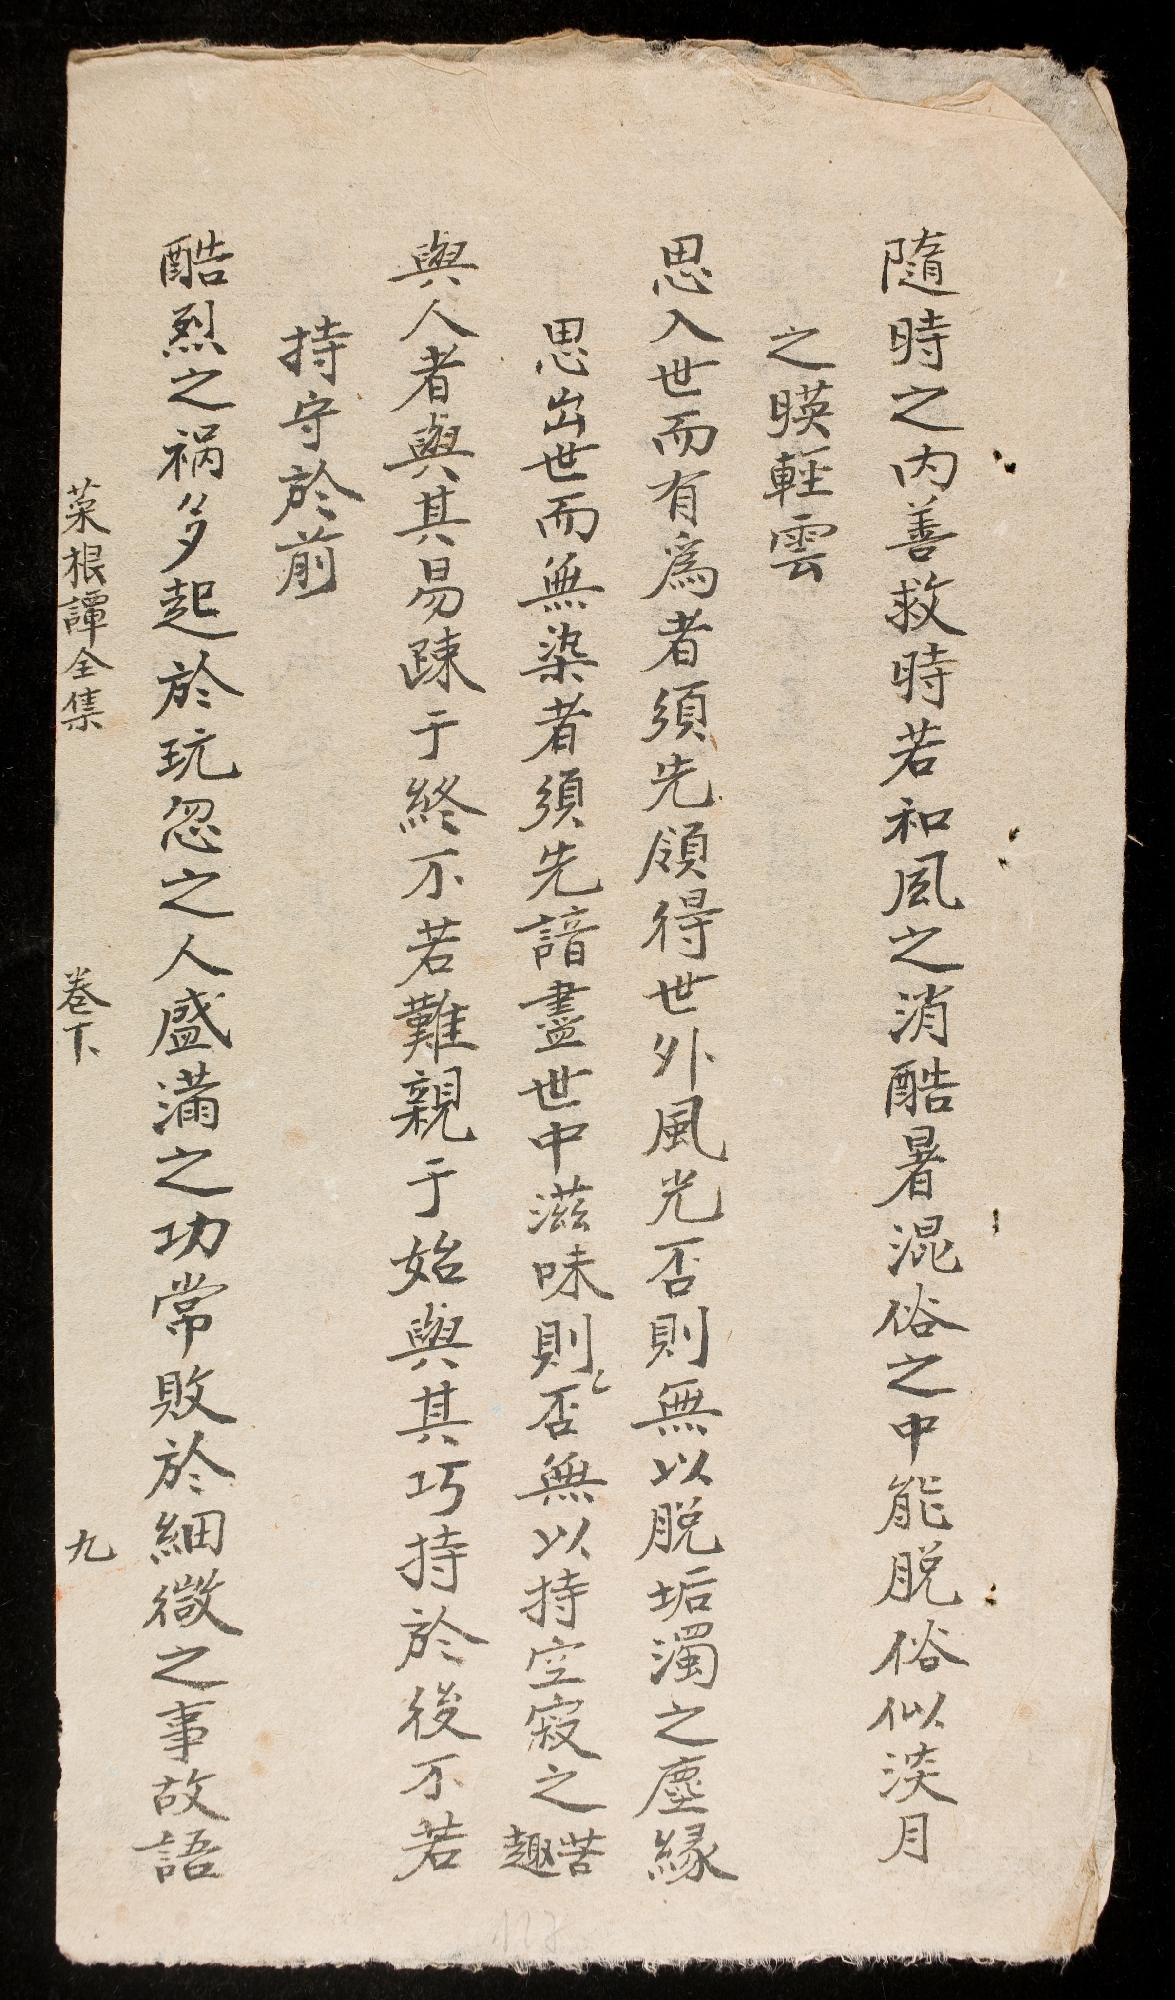 隨時之内善救時若和風之消酷暑混俗之中能脱俗似淡月
之暎輕雲
思入世而有爲者須先領得世外風光否則無以脱垢濁之塵緣
思出世而無染者須先諳盡世中滋味則否無以持空寂之苦趣
與人者與其易踈于終不若難親于始與其巧持於後不若
持守於前
酷烈之禍多起於玩忽之人盛滿之功常敗於細微之事故語
菜根譚全集 卷下 九